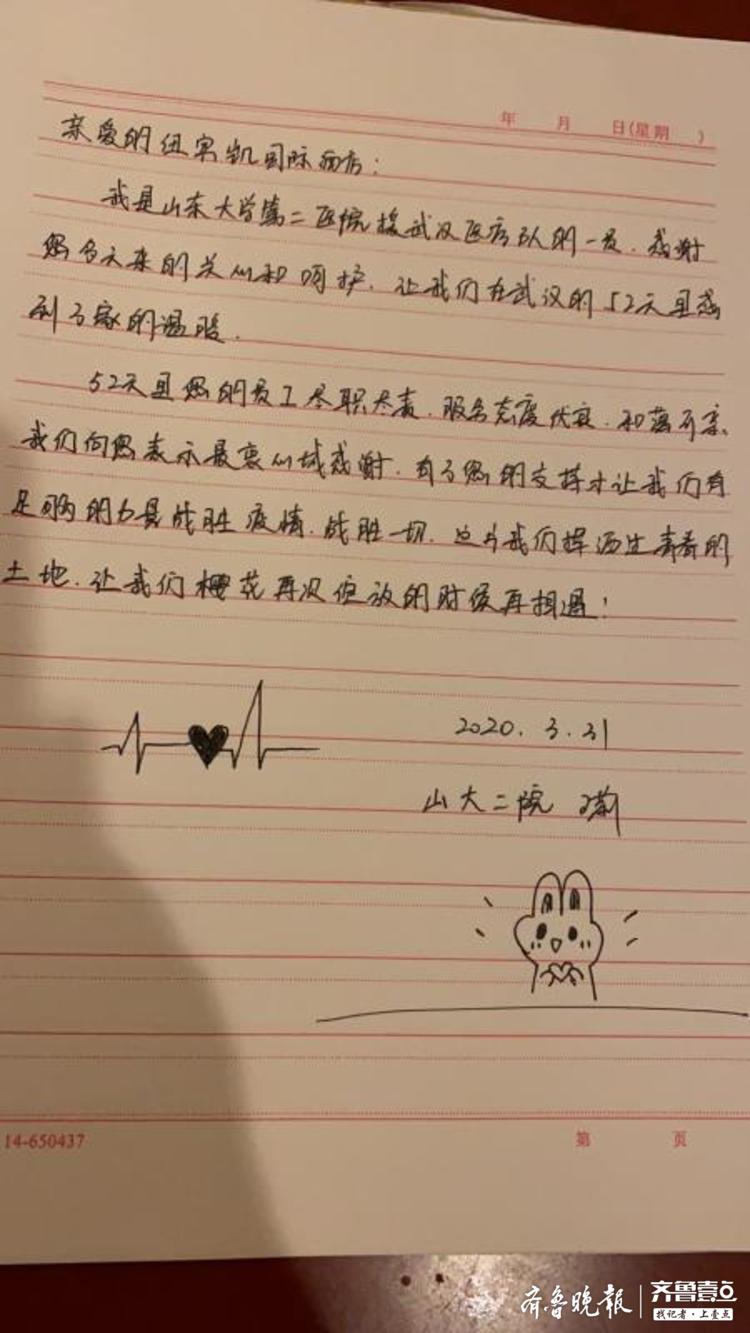 年 月 日(星期 )
亲爱的纽宾凯国际酒店:
我是山东大学第二医院援武汉医疗队的一员.感谢
您多天来的关心和呵护.让我们在武汉的52天里感
到了家的温暖.
52天里您的员工尽职尽责.服务态度优良.和蔼可亲.
我们向您表示最衷心域感谢.有了您的支持才让我们有
足够的力量战胜疫情.战胜一切.这片我们挥洒过青春的
土地.让我们樱花再次绽放的时候再相遇!
2020.3.31
山大二院
14-650437
第 页
齐鲁晚报
齐鲁壹点
找记者·上壹点